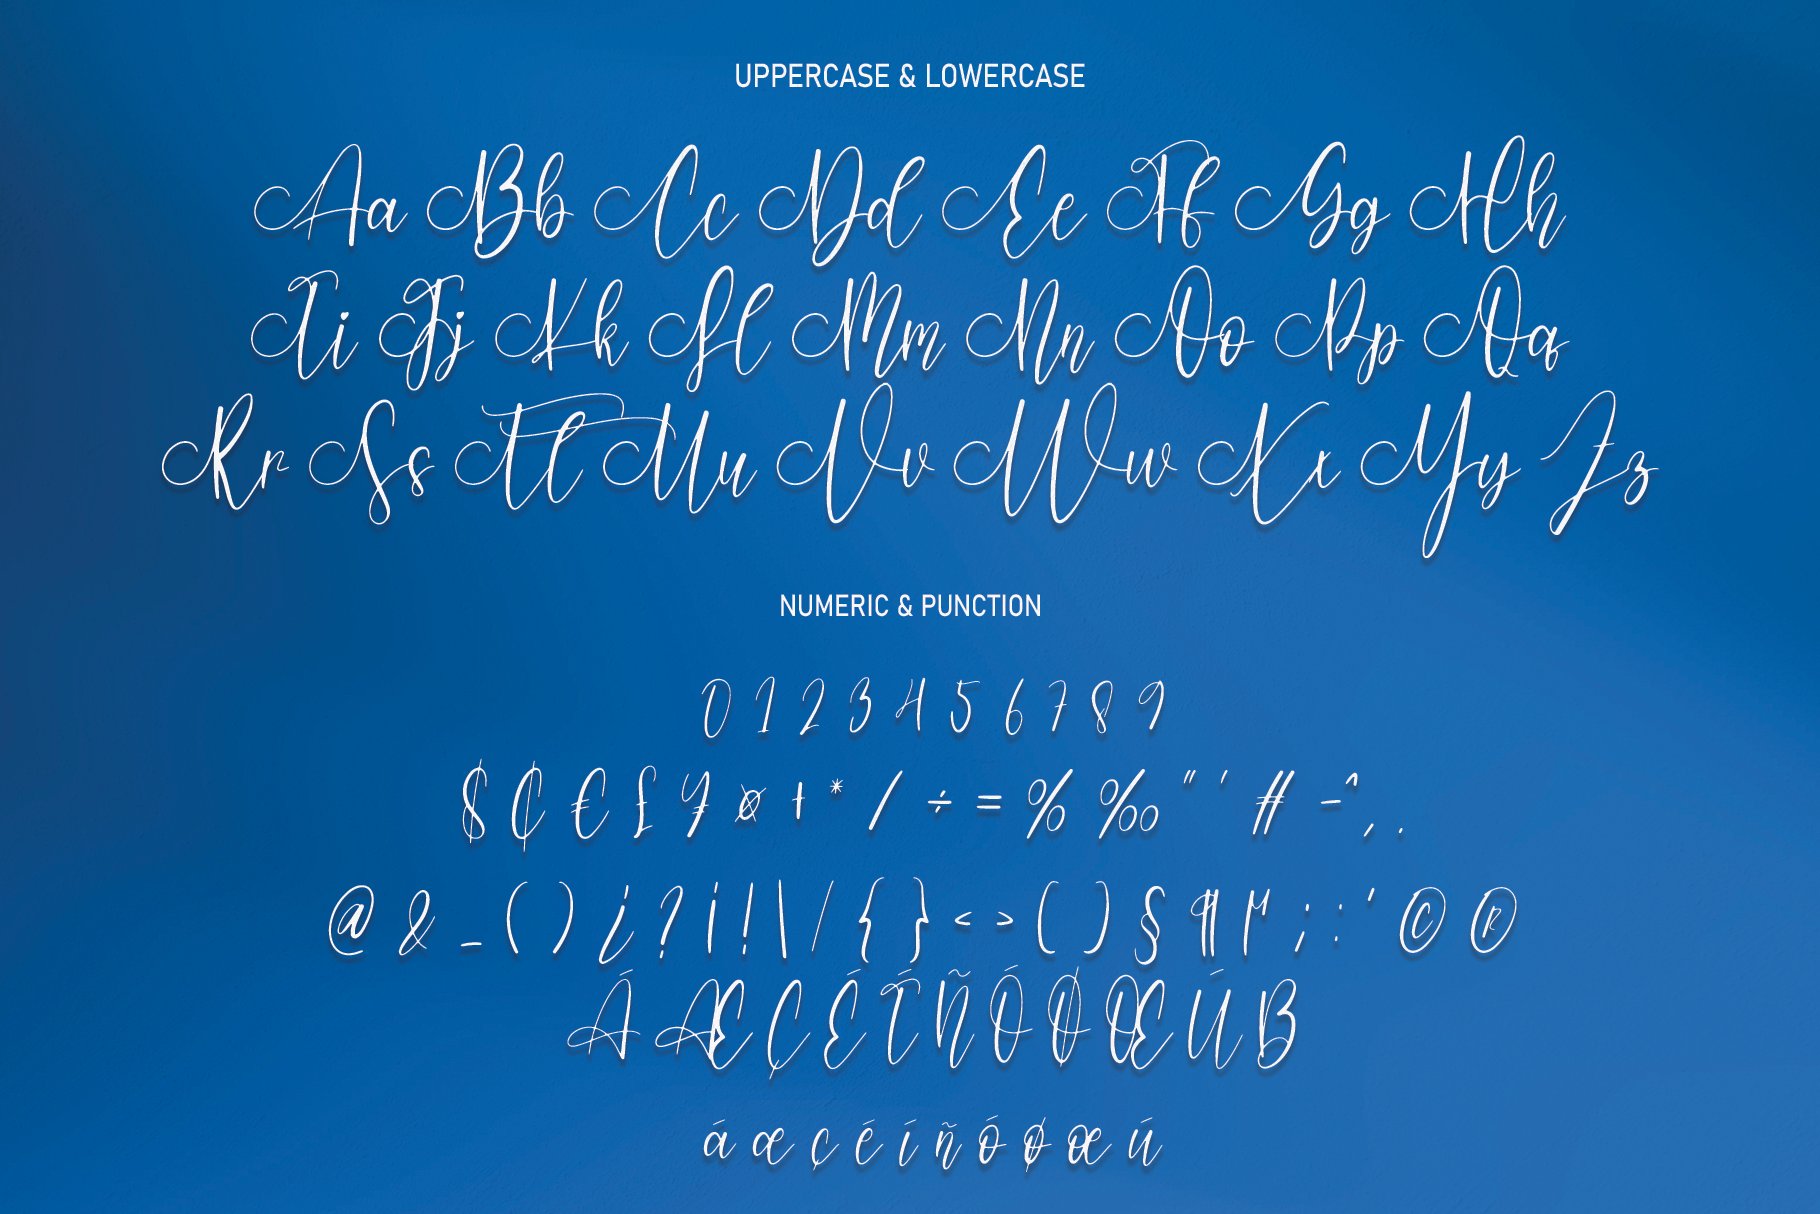 UPPERCASE & LOWERCASE
Aa Bb Cc Dd Ee Ff Gg Hh
Ii Jj Kk Ll Mm Nn Oo Pp Qq
Rr Ss Tt Uu Vv Ww Xx Yy Zz
NUMERIC & PUNCTION
0 1 2 3 4 5 6 7 8 9
$ ¢ € £ ¥ ¤ + * / ÷ = % ‰ " ' # - ^ , .
@ & _ ( ) ¿ ? ¡ ! \ / { } < > ( ) § ¶ µ ; : ' © ®
Á Æ Ç É Í Ñ Ó Ø Œ Ú B
á æ ç é í ñ ó ø œ ú